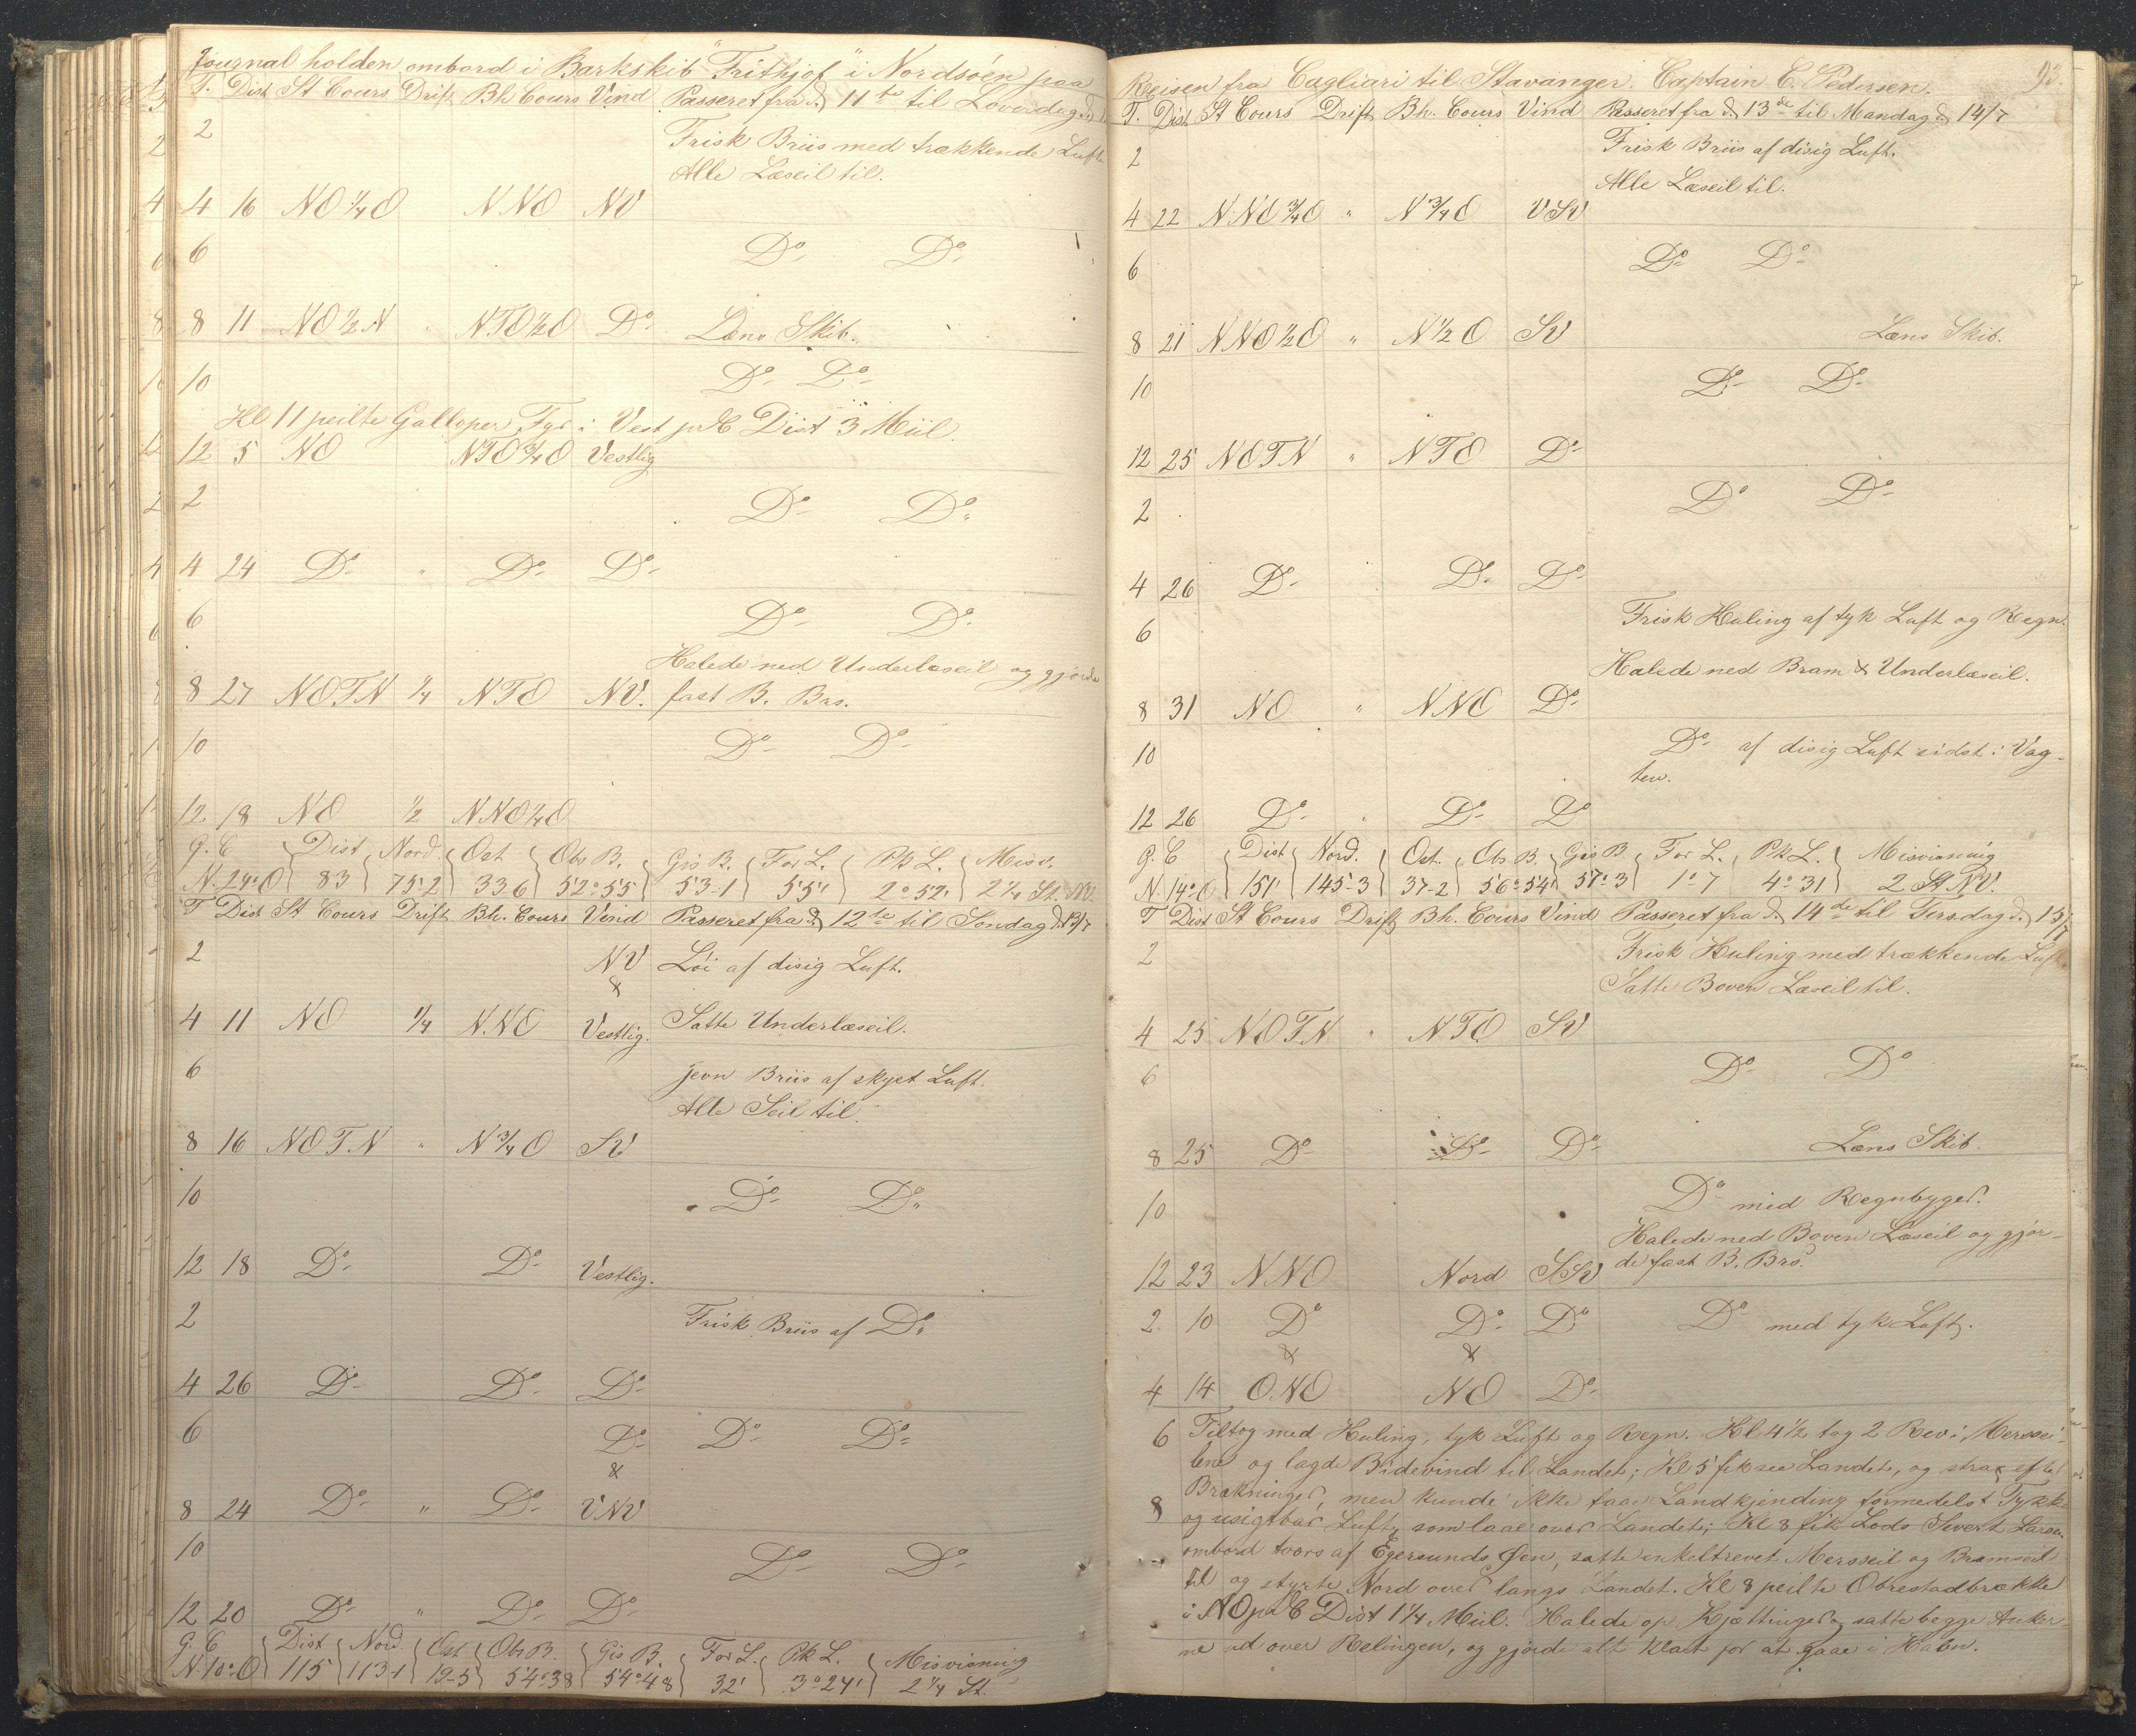 Journal holden ombord i Barkskib "Frithjof" i Nordsöen paa
T. Dist St Cours Drift Bh Cours Vind Passeret fra d. 11te til Löverdag d.
2 Frisk Briis med trækkende Luft.
Alle Læseil til.
4 16 NO ¼ O NNO NV
6 Do Do
8 11 NO ½ N " NTO ½ O Do Læns Skib.
10 Do Do
Kl 11 peilte Galloper Fyr i Vest pr C Dist 3 Miil.
12 5 NO NTO ¾ O Vestlig
2 Do Do
4 24 Do " Do Do
6 Do Do
Halede ned Underlæseil og gjorde
8 27 NOTN ¼ NTO NV. fast B. Brs.
10 Do Do
12 18 NO ½ NNO ¼ O
G. C Dist Nord. Ost Obs B. Gis B. For L. Pk L. Misv.
N. 24° O 83 75-2 33 6 52°55 53-1 55' 2°52' 2¼ St. NV.
T Dist St Cours Drift Bh. Cours Vind Passeret fra d. 12te til Söndag d. 13/7
2 NV Löi af disig Luft.
&
4 11 NO ¼ N.NO Vestlig. Satte Underlæseil.
6 jevn Briis af skyet Luft.
Alle Seil til.
8 16 NOTN " N ¾ O SV
10 Do Do
12 18 Do Do Vestlig.
2 Frisk Briis af Do
4 26 Do Do Do
6 Do Do Do
&
8 24 Do " Do VNV
10 Do Do
12 20 Do " Do Do
G. C Dist Nord. Ost Obs B. Gis B. For L. Pk L. Misvisning
N. 10° O 115 113-1 19-5 54°38 54°48 32' 3°24' 2¼ St.
93.
Reisen fra Cagliari til Stavanger. Captain C. Pedersen.
T. Dist St Cours Drift Bh. Cours Vind Passeret fra d. 13de til Mandag d. 14/7
2 Frisk Briis af disig Luft.
Alle Læseil til.
4 22 N.NO ¾ O " N ¾ O VSV
6 Do Do
8 21 NNO ½ O " N ½ O SV Læns Skib.
10 Do Do
12 25 NOTN " NTO Do
2 Do Do
4 26 Do Do Do
6 Frisk Kuling af tyk Luft og Regn.
Halede ned Bram & Underlæseil.
8 31 NO " NNO Do
10 Do af disig Luft sidst i Vag-
ten.
12 26 Do " Do Do
G. C Dist Nord. Ost. Obs B. Gis B. For L. Pk L. Misvisning
N. 14° O 151' 145-3 37-2 56°54' 57°3 1°7 4°31 2 St NV.
T Dist St Cours Drift Bh. Cours Vind Passeret fra d. 14de til Tirsdag d. 15/7
2 Frisk Kuling med trækkende Luft.
Satte Boven Læseil til.
4 25 NOTN " NTO SV
6 Do Do
8 25 Do Do Do Læns Skib.
10 Do med Regnbyger.
Halede ned Boven Læseil og gjor-
12 23 NNO Nord SSV de fast B. Brs.
2 10 Do Do Do Do med tyk Luft.
& &
4 14 ONO NO Do
6 Tiltog med Kuling, tyk Luft og Regn. Kl 4½ tog 2 Rev i Mersei-
lene og lagde Bidevind til Landet; Kl 5 fik see Landet, og strax efter
Brækninger, men kunde ikke faae Landkjending formedelst Tykke
8 og usigtbar Luft, som laae over Landet; Kl 8 fik Lods Sivert Larsen
ombord tvers af Egersunds Öen, satte enkeltrevet Mersseil og Bramseil
til og styrte Nord over langs Landet. Kl 8 peilte Obrestadbrække
i NO pr C Dist 1¼ Miil. Halede op Kjættinger og satte begge Anker-
ne ud over Relingen, og gjorde alt klart for at gaae i Havn.